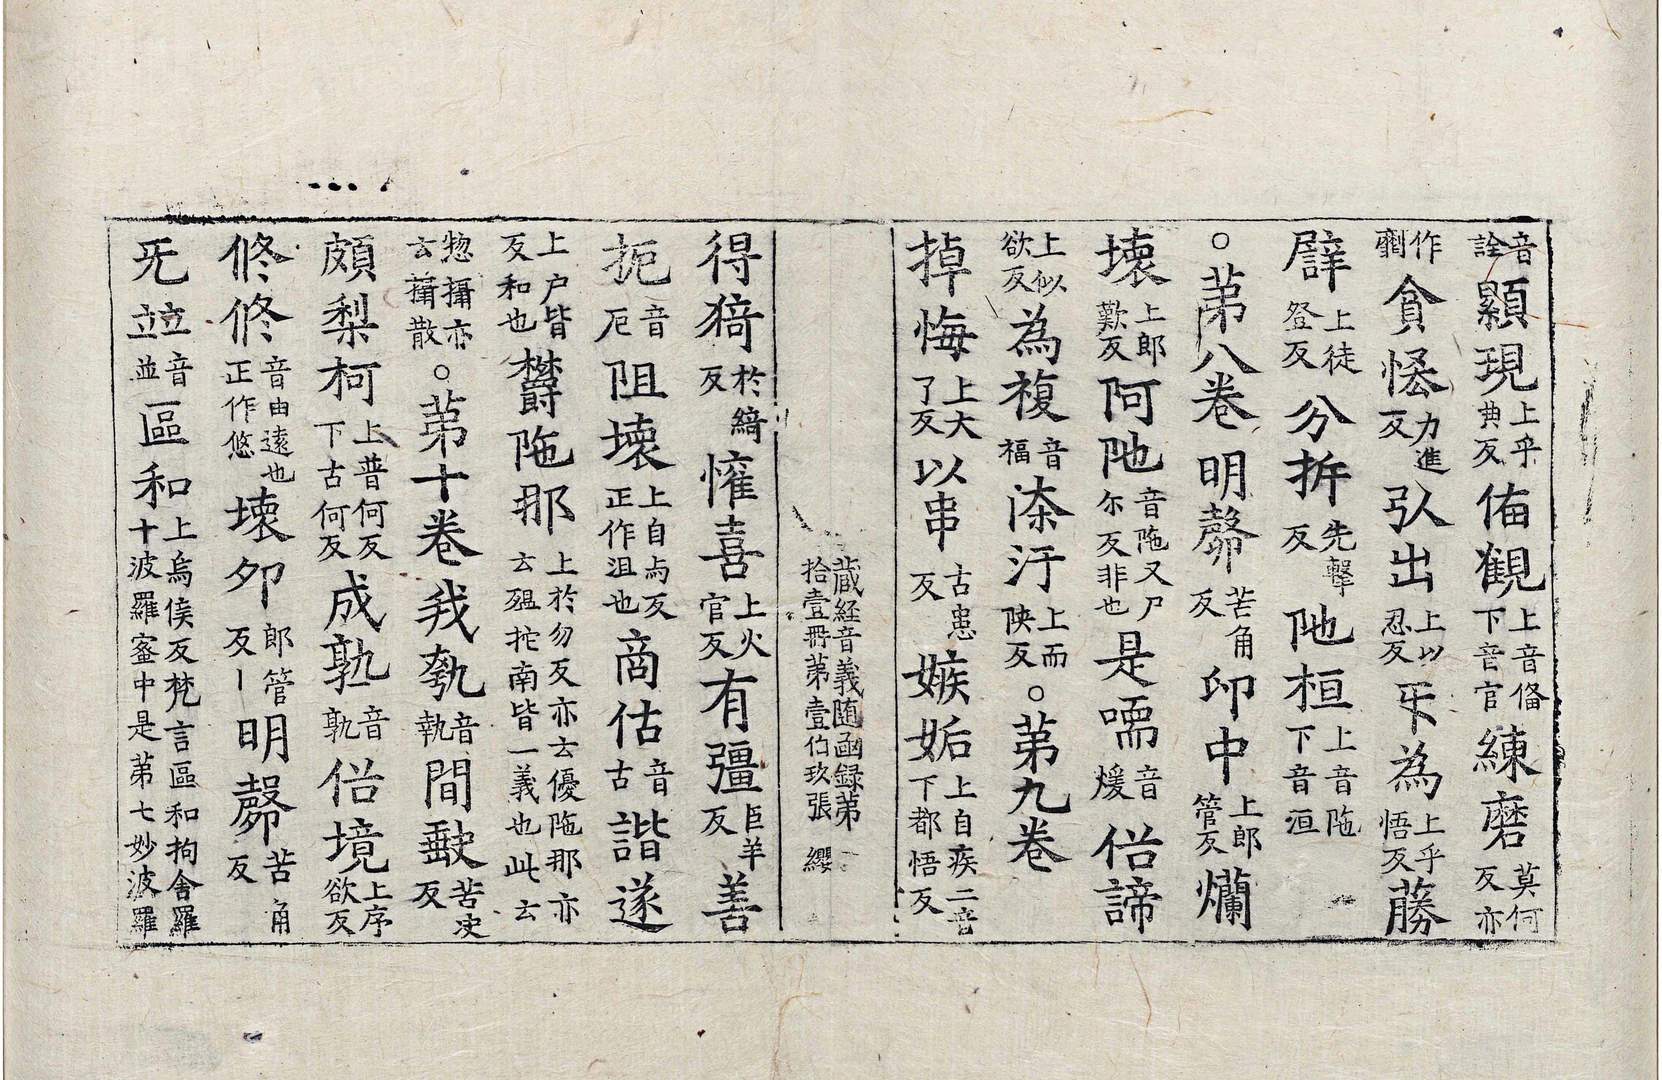 音詮顯現上乎典反侑觀上音俻下音官練磨莫何反亦
作劘貪恡力進反引出上以忍反㸦為上乎悟反蕂
礔上徒登反分㭊先擊反阤桓上音陁下音洹
○苐八卷明㲉苦角反卵中上郎管反爛
壊上郎歎反阿阤音陁又尸尒反非也是㬉音煖俗諦
上似欲反為複音福㳍汙上而陜反○苐九卷
掉悔上大了反以串古患反嫉妬上自疾二音下都悟反
藏経音義随函録苐拾壹冊苐壹伯玖張 纓
得猗於綺反懽喜上火官反有彊巨羊反善
扼音厄阻壊上自与反正作沮也商估音古諧遂
上戶皆反和也欝陁那上於勿反亦云優陁那亦云殟拕南皆一義也此云
惣攝亦云攝散○苐十卷我埶音執間㱁苦洨反
頗梨柯上普何反下古何反成孰音孰俗境上序欲反
修修音由遠也正作悠壊夘郎管反明㲉苦角反
旡竝音並區和上烏侯反梵言區和拘舍羅十波羅蜜中是苐七妙波羅